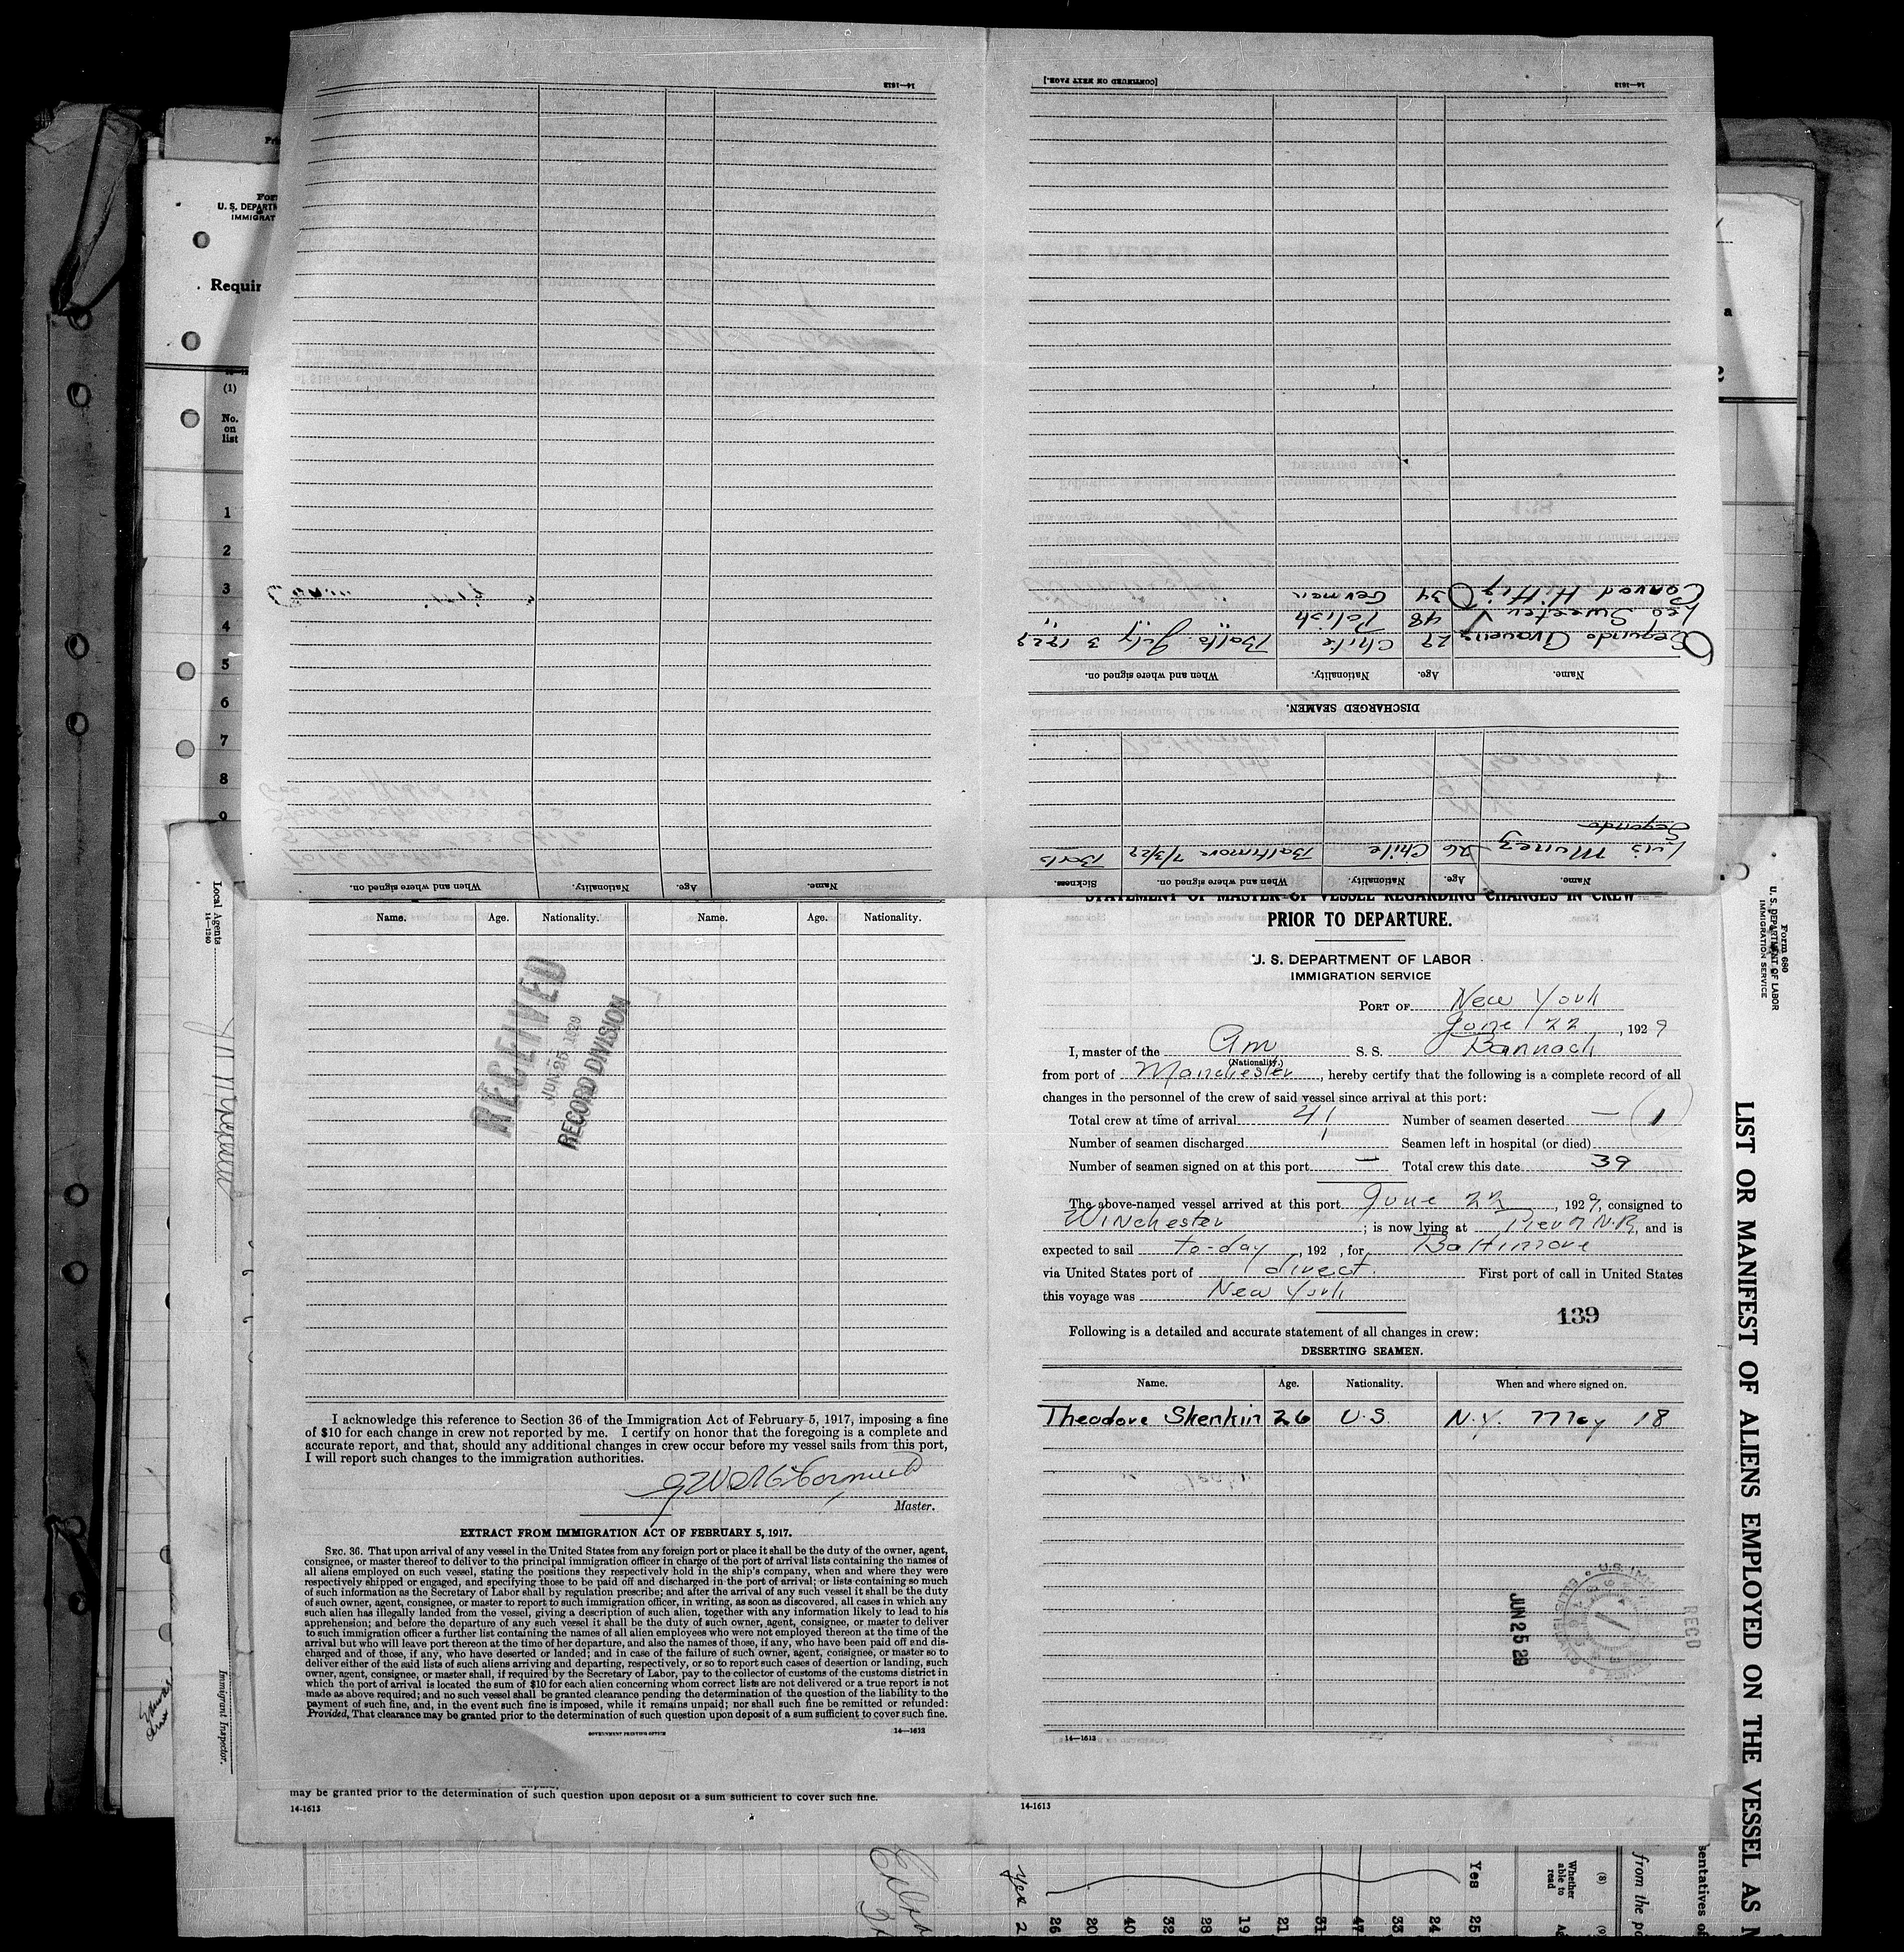 14—1613
[CONTINUED ON NEXT PAGE.]
14—1613
Form
U. S. DEPARTM
IMMIGRAT
Requir
(1)
No.
on
list
1
2
3
4
5
6
7
8
9
Conrad Hittig 34 German " "
Leo Sweeter 48 Polish " "
Segundo Aravena 29 Chile Balto July 3 1929
Name. Age. Nationality. When and where signed on.
DISCHARGED SEAMEN.
Segundo
Luis Munez 26 Chile Baltimore 7/3/29
Name. Age. Nationality. When and where signed on. Sickness.
Name. Age. Nationality. When and where signed on.
Local Agents
14—1240
Immigrant Inspector.
Name. Age. Nationality. Name. Age. Nationality.
RECEIVED
JUN 25 1929
RECORD DIVISION
I acknowledge this reference to Section 36 of the Immigration Act of February 5, 1917, imposing a fine
of $10 for each change in crew not reported by me. I certify on honor that the foregoing is a complete and
accurate report, and that, should any additional changes in crew occur before my vessel sails from this port,
I will report such changes to the immigration authorities.
Master.
EXTRACT FROM IMMIGRATION ACT OF FEBRUARY 5, 1917.
SEC. 36. That upon arrival of any vessel in the United States from any foreign port or place it shall be the duty of the owner, agent,
consignee, or master thereof to deliver to the principal immigration officer in charge of the port of arrival lists containing the names of
all aliens employed on such vessel, stating the positions they respectively hold in the ship's company, when and where they were
respectively shipped or engaged, and specifying those to be paid off and discharged in the port of arrival; or lists containing so much
of such information as the Secretary of Labor shall by regulation prescribe; and after the arrival of any such vessel it shall be the duty
of such owner, agent, consignee, or master to report to such immigration officer, in writing, as soon as discovered, all cases in which any
such alien has illegally landed from the vessel, giving a description of such alien, together with any information likely to lead to his
apprehension; and before the departure of any such vessel it shall be the duty of such owner, agent, consignee, or master to deliver
to such immigration officer a further list containing the names of all alien employees who were not employed thereon at the time of the
arrival but who will leave port thereon at the time of her departure, and also the names of those, if any, who have been paid off and dis-
charged and of those, if any, who have deserted or landed; and in case of the failure of such owner, agent, consignee, or master so to
deliver either of the said lists of such aliens arriving and departing, respectively, or so to report such cases of desertion or landing, such
owner, agent, consignee, or master shall, if required by the Secretary of Labor, pay to the collector of customs of the customs district in
which the port of arrival is located the sum of $10 for each alien concerning whom correct lists are not delivered or a true report is not
made as above required; and no such vessel shall be granted clearance pending the determination of the question of the liability to the
payment of such fine, and, in the event such fine is imposed, while it remains unpaid; nor shall such fine be remitted or refunded:
Provided, That clearance may be granted prior to the determination of such question upon deposit of a sum sufficient to cover such fine.
GOVERNMENT PRINTING OFFICE 14—1613
may be granted prior to the determination of such question upon deposit of a sum sufficient to cover such fine.
14-1613
STATEMENT OF MASTER OF VESSEL REGARDING CHANGES IN CREW
PRIOR TO DEPARTURE.
U. S. DEPARTMENT OF LABOR
IMMIGRATION SERVICE
PORT OF New York
June 22, 1929
I, master of the Am S. S. Bannack
(Nationality.)
from port of Manchester, hereby certify that the following is a complete record of all
changes in the personnel of the crew of said vessel since arrival at this port:
Total crew at time of arrival 41 Number of seamen deserted — (1)
Number of seamen discharged 1 Seamen left in hospital (or died)
Number of seamen signed on at this port — Total crew this date 39
The above-named vessel arrived at this port June 22, 1929, consigned to
Winchester; is now lying at Pier 7 N.R, and is
expected to sail to-day, 192 , for Baltimore
via United States port of direct. First port of call in United States
this voyage was New York
139
Following is a detailed and accurate statement of all changes in crew:
DESERTING SEAMEN.
Name. Age. Nationality. When and where signed on.
Theodore Shenkin 26 U.S. N.Y. May 18
JUN 25 29
RECD
14—1613
14-1613
Form 680
U. S. DEPARTMENT OF LABOR
IMMIGRATION SERVICE
LIST OR MANIFEST OF ALIENS EMPLOYED ON THE VESSEL AS M
Yes 2
26
20
40
32
28
19
21
31
47
33
24
25
Yes
(8)
Whether
able to
read
(9)
from the po
sentatives of